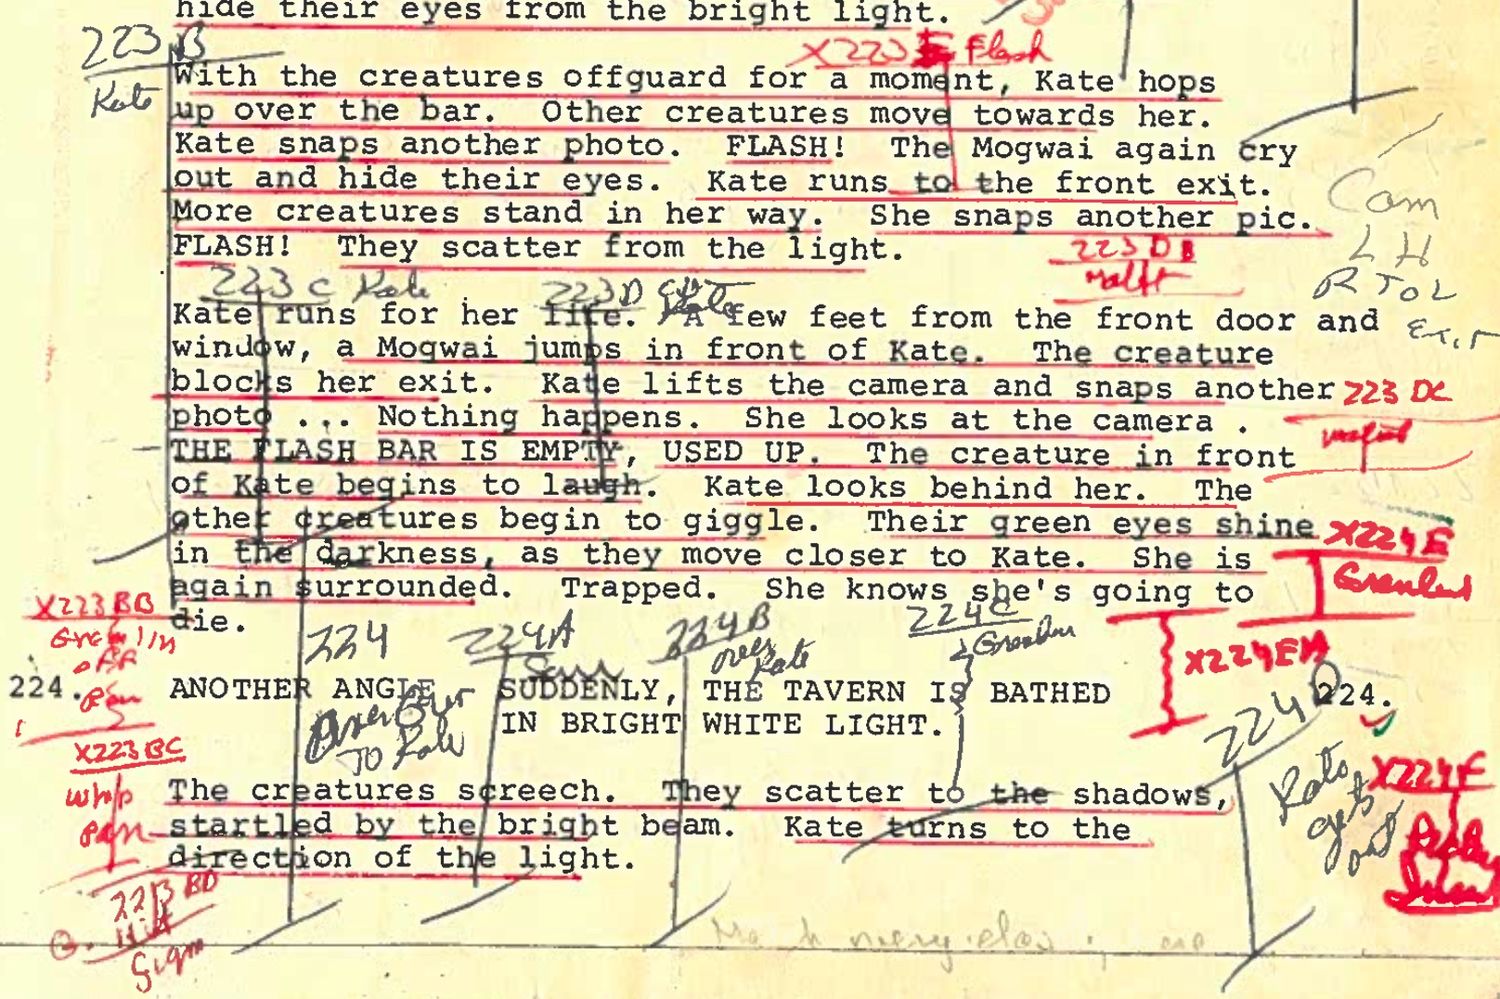 hide their eyes from the bright light.
223 B
X223 E Flash
Kate
With the creatures offguard for a moment, Kate hops
up over the bar. Other creatures move towards her.
Kate snaps another photo. FLASH! The Mogwai again cry
out and hide their eyes. Kate runs to the front exit.
More creatures stand in her way. She snaps another pic.
FLASH! They scatter from the light.
Cam
L H
R TO L
Exit
223 DB
223 C Kate
223D
Kate runs for her life. A few feet from the front door and
window, a Mogwai jumps in front of Kate. The creature
blocks her exit. Kate lifts the camera and snaps another
223 DC
photo ... Nothing happens. She looks at the camera .
THE FLASH BAR IS EMPTY, USED UP. The creature in front
of Kate begins to laugh. Kate looks behind her. The
other creatures begin to giggle. Their green eyes shine
X224E
in the darkness, as they move closer to Kate. She is
again surrounded. Trapped. She knows she's going to
die.
X223BB
Gremlin
off
Pan
224
224A
224B
over
Kate
224C
X224EA
224. ANOTHER ANGLE SUDDENLY, THE TAVERN IS BATHED 224.
IN BRIGHT WHITE LIGHT.
TO Kate
224
Kate
gets
out
X223BC
whip
pan
X224F
The creatures screech. They scatter to the shadows,
startled by the bright beam. Kate turns to the
direction of the light.
223 BD
Hit
Sign